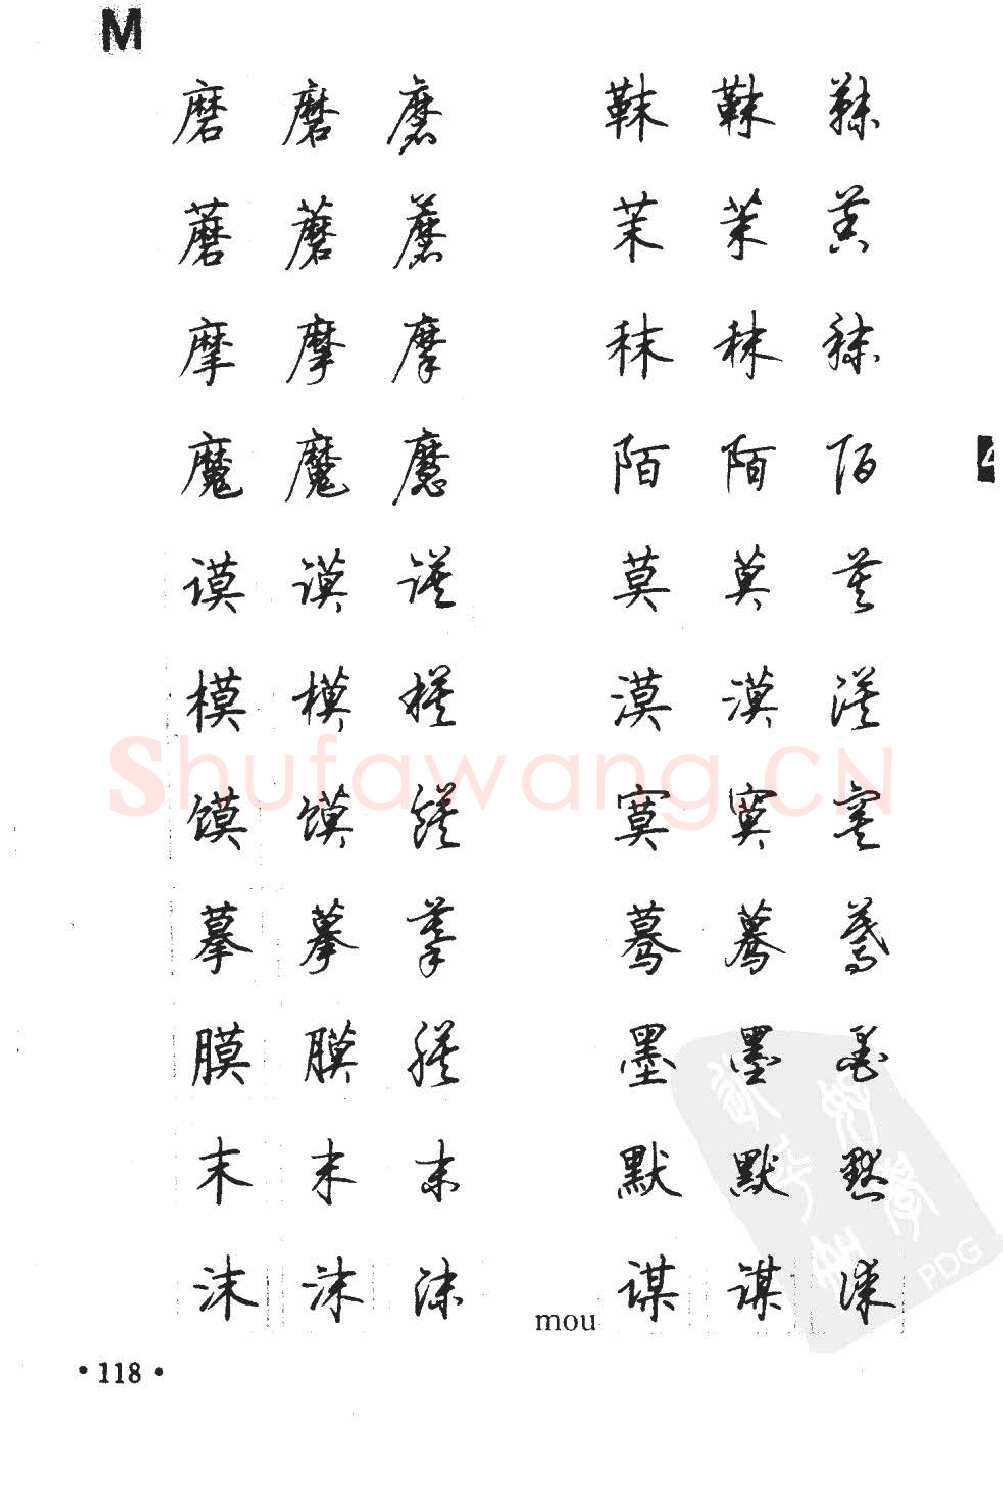 M
磨 磨 磨
蘑 蘑 蘑
摩 摩 摩
魔 魔 魔
谟 谟 谟
模 模 模
馍 馍 馍
摹 摹 摹
膜 膜 膜
末 末 末
沫 沫 沫
靺 靺 靺
茉 茉 茉
秣 秣 秣
陌 陌 陌
莫 莫 莫
漠 漠 漠
寞 寞 寞
蓦 蓦 蓦
墨 墨 墨
默 默 默
mou 谋 谋 谋
Shufawang.CN
PDG
·118·